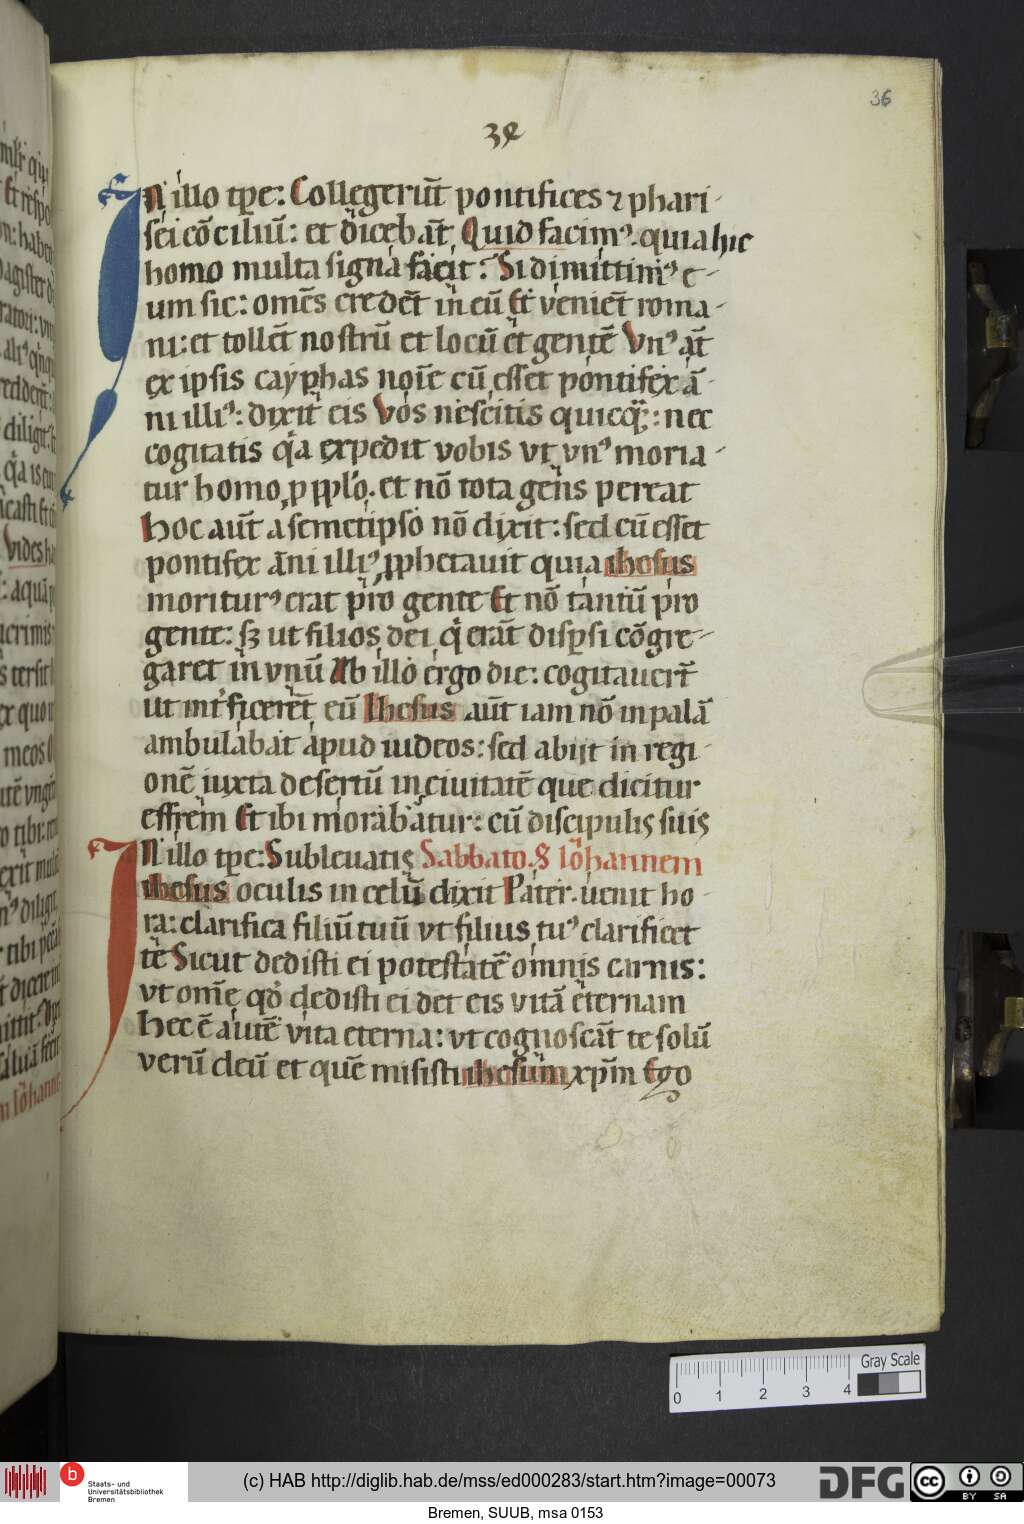 36
38
In illo tp̄e: Collegerūt pontifices ⁊ phari-
sei cōciliū: et dicebāt Quid facimꝰ. quia hic
homo multa signa facit. Si dimittimꝰ e-
um sic: om̄es credēt in eū Et veniēt roma-
ni: et tollēt nostrū et locū et gentē Vnꝰ āt
ex ipsis cayphas noīe cū esset pontifex ā-
ni illiꝰ: dixit eis Vos nescitis quicq̄: nec
cogitatis q̄a expedit vobis vt vnꝰ moria-
tur homo p pplo. et nō tota gens pereat
Hoc aūt a semetipso nō dixit: sed cū esset
pontifex āni illiꝰ, pphetauit quia ihesus
moriturꝰ erat pro gente Et nō tantū pro
gente: sꝫ ut filios dei q̄ erāt disp̄si cōgre-
garet in vnū Ab illo ergo die: cogitauerūt
ut int̄ficerēt eū Ihesus aūt iam nō in palā
ambulabat apud iudeos: sed abijt in regi-
onē iuxta desertū in ciuitatē que dicitur
effrem Et ibi morabatur: cū discipulis suis
In illo tp̄e: Subleuatis Sabbato. S Iōhannem
ihesus oculis in celū dixit Pater. uenit ho-
ra: clarifica filiū tuū vt filius tuꝰ clarificet
te Sicut dedisti ei potestatē omnis carnis:
vt om̄e qd̄ dedisti ei det eis vitā eternam
Hec ē autē vita eterna: vt cognoscāt te solū
verū deū et quē misisti ihesum xp̄m Ego
0 1 2 3 4
Gray Scale
b
Staats- und
Universitätsbibliothek
Bremen
(c) HAB http://diglib.hab.de/mss/ed000283/start.htm?image=00073
DFG
cc BY SA
Bremen, SUUB, msa 0153